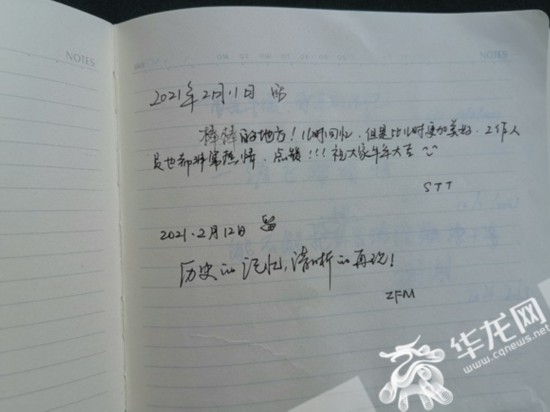 NOTES
NOTES
2021年2月11日 留
棒棒的地方！儿时回忆，但是比儿时更加美好，工作人
员也都非常热情，点赞！！！祝大家牛年大吉
STT
2021.2月12日 留
历史的记忆，清晰的再现！
ZFM
华龙网
www.cqnews.net